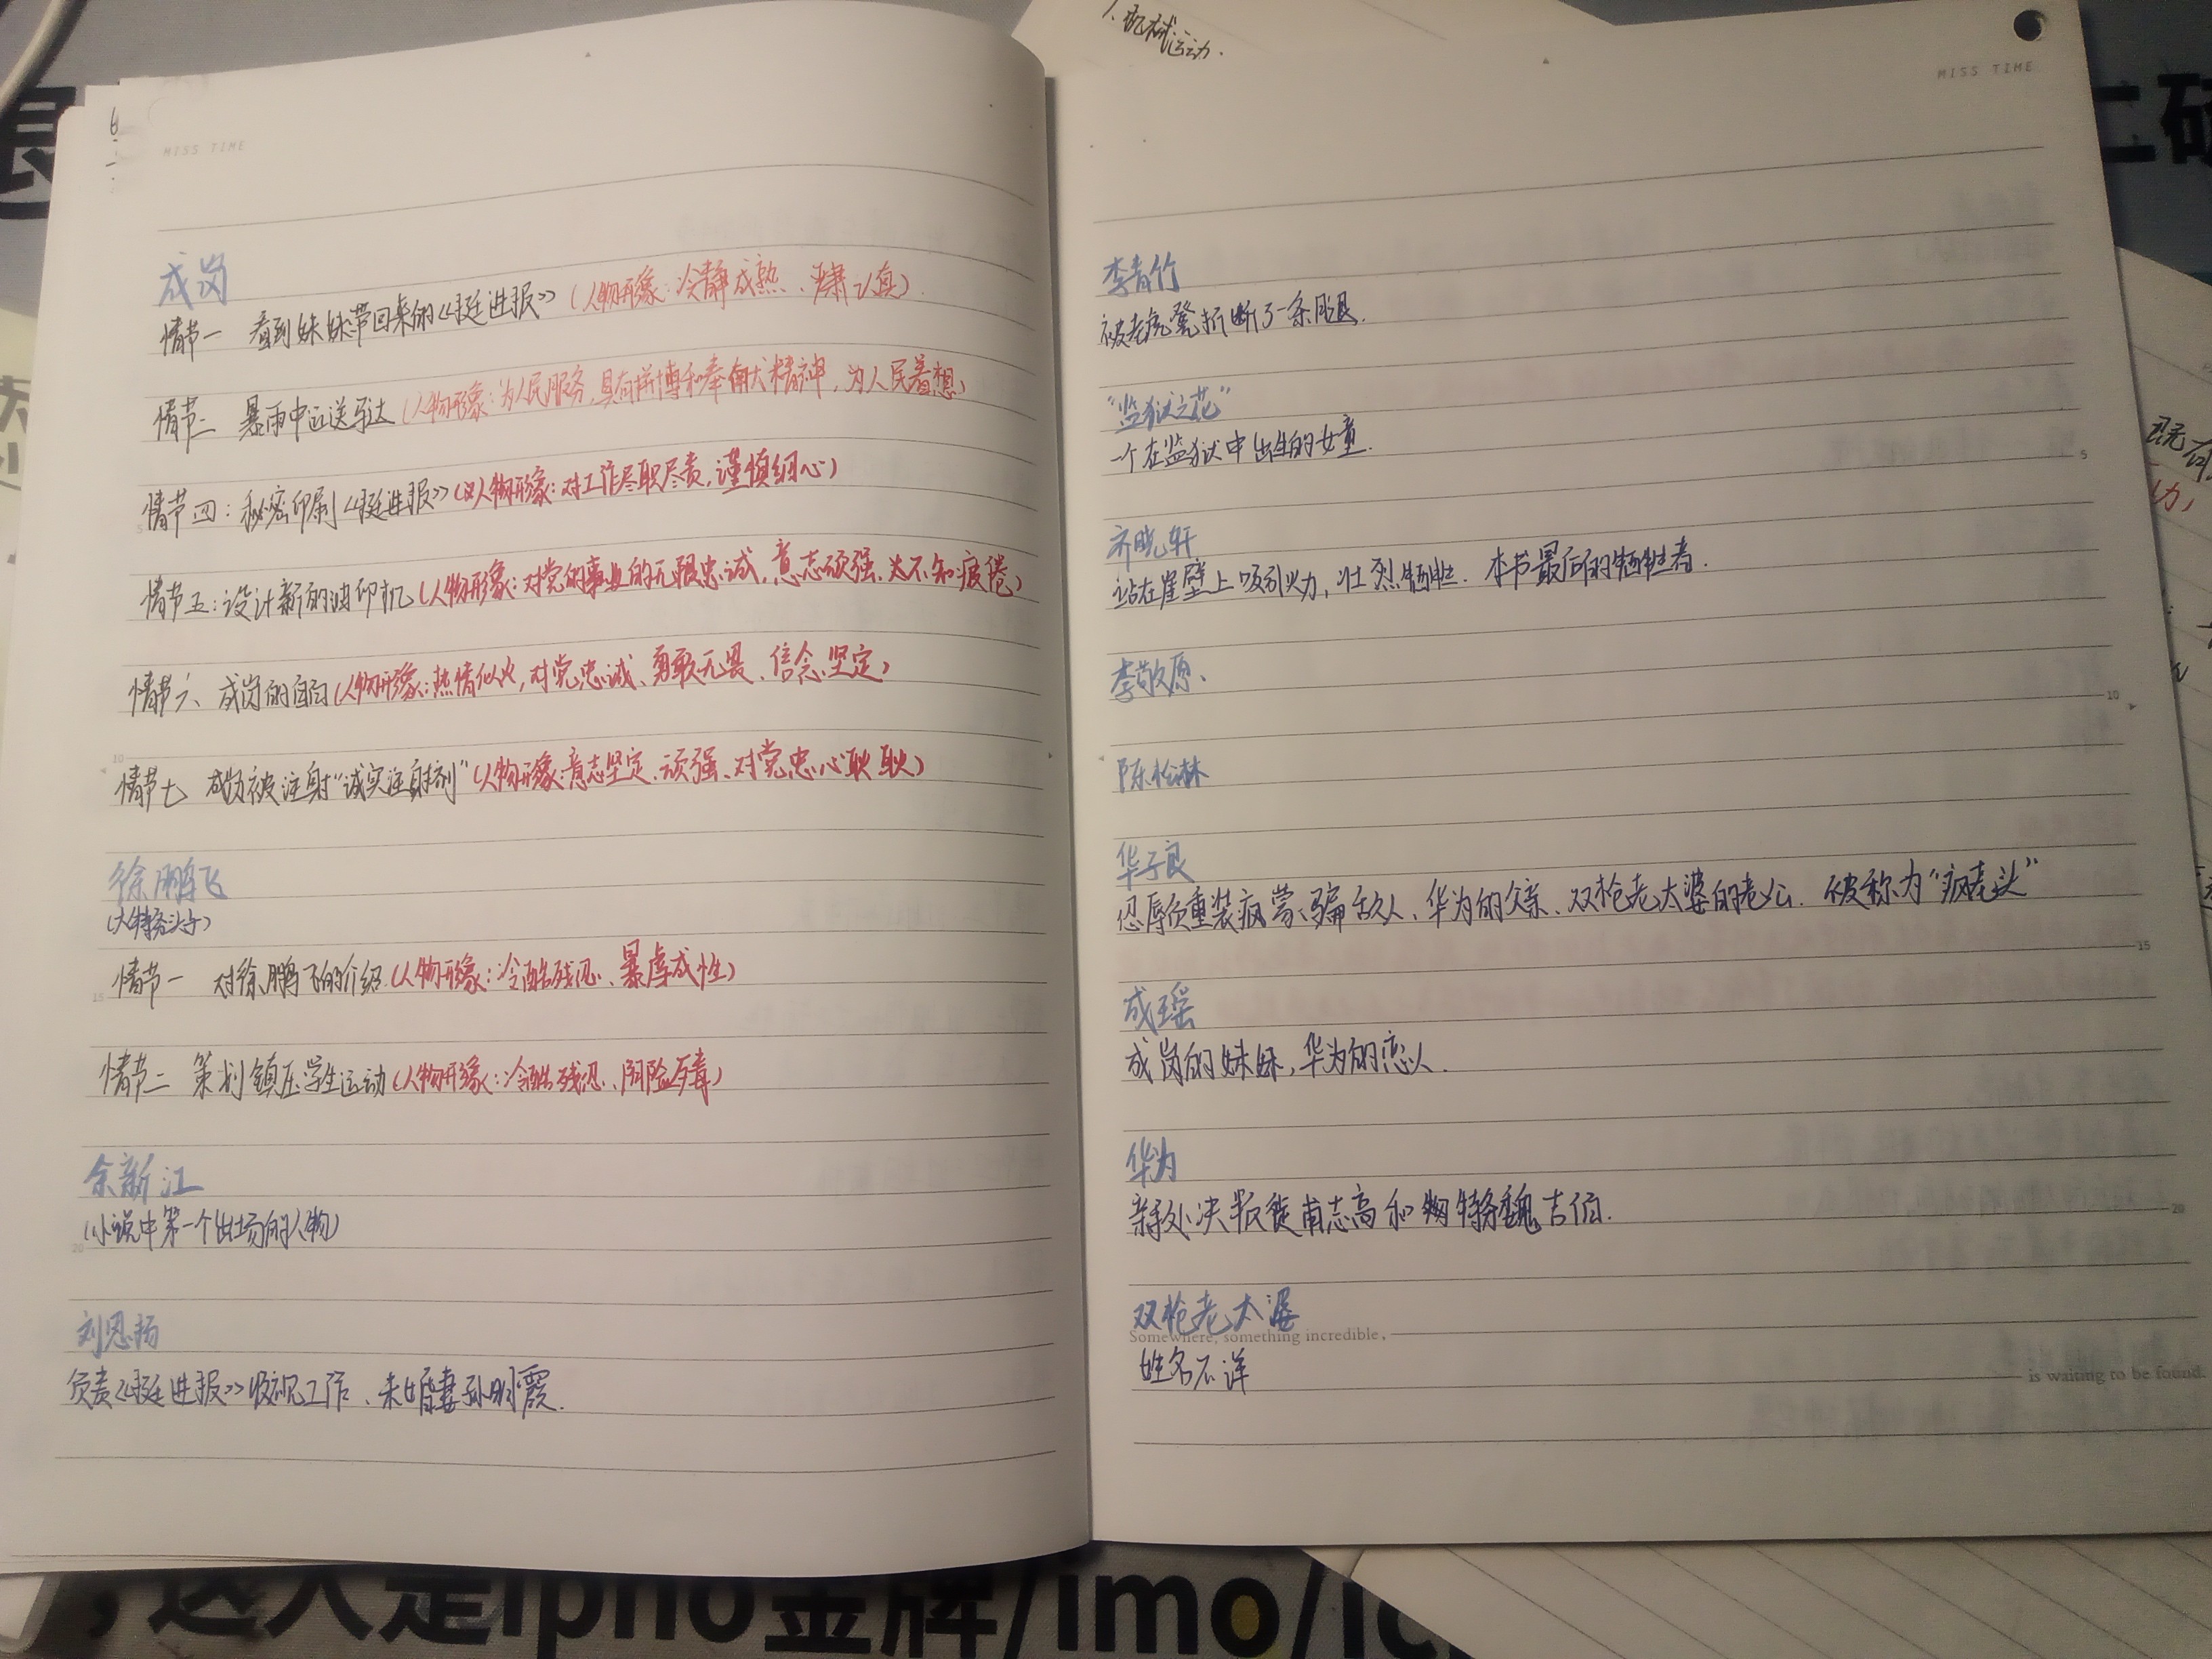 1. 机械运动.
MISS TIME
成岗
情节一 看到妹妹带回来的《挺进报》(人物形象:冷静成熟、严肃认真)
情节二 暴雨中运送马达(人物形象:为人民服务,具有拼博和奉献精神,为人民着想)
情节四:秘密印刷《挺进报》(人物形象:对工作尽职尽责,谨慎细心)
5
情节五:设计新的油印机(人物形象:对党的事业的无限忠诚,意志顽强、不知疲倦)
情节六、成岗的自白(人物形象:热情似火,对党忠诚、勇敢无畏、信念坚定)
10
情节七 成岗被注射"诚实注射剂"(人物形象:意志坚定、顽强、对党忠心耿耿)
徐鹏飞
(大特务头子)
情节一 对徐鹏飞的介绍(人物形象:冷酷残忍、暴虐成性)
15
情节二 策划镇压学生运动(人物形象:冷酷残忍、阴险歹毒)
余新江
(小说中第一个出场的人物)
20
刘思扬
负责《挺进报》收听工作、未婚妻孙明霞.
MISS TIME
李青竹
被老虎凳折断了一条腿.
"监狱之花"
一个在监狱中出生的女童.
5
齐晓轩
站在崖壁上吸引火力,壮烈牺牲.本书最后的牺牲者.
李敬原、
10
陈松林
华子良
忍辱负重装疯蒙骗敌人、华为的父亲、双枪老太婆的老公.被称为"疯老头"
15
成瑶
成岗的妹妹,华为的恋人.
华为
亲手处决叛徒甫志高和特务魏吉伯.
20
双枪老太婆
Somewhere, something incredible,
姓名不详
is waiting to be found.
,这人是ipho金牌/imo/ic